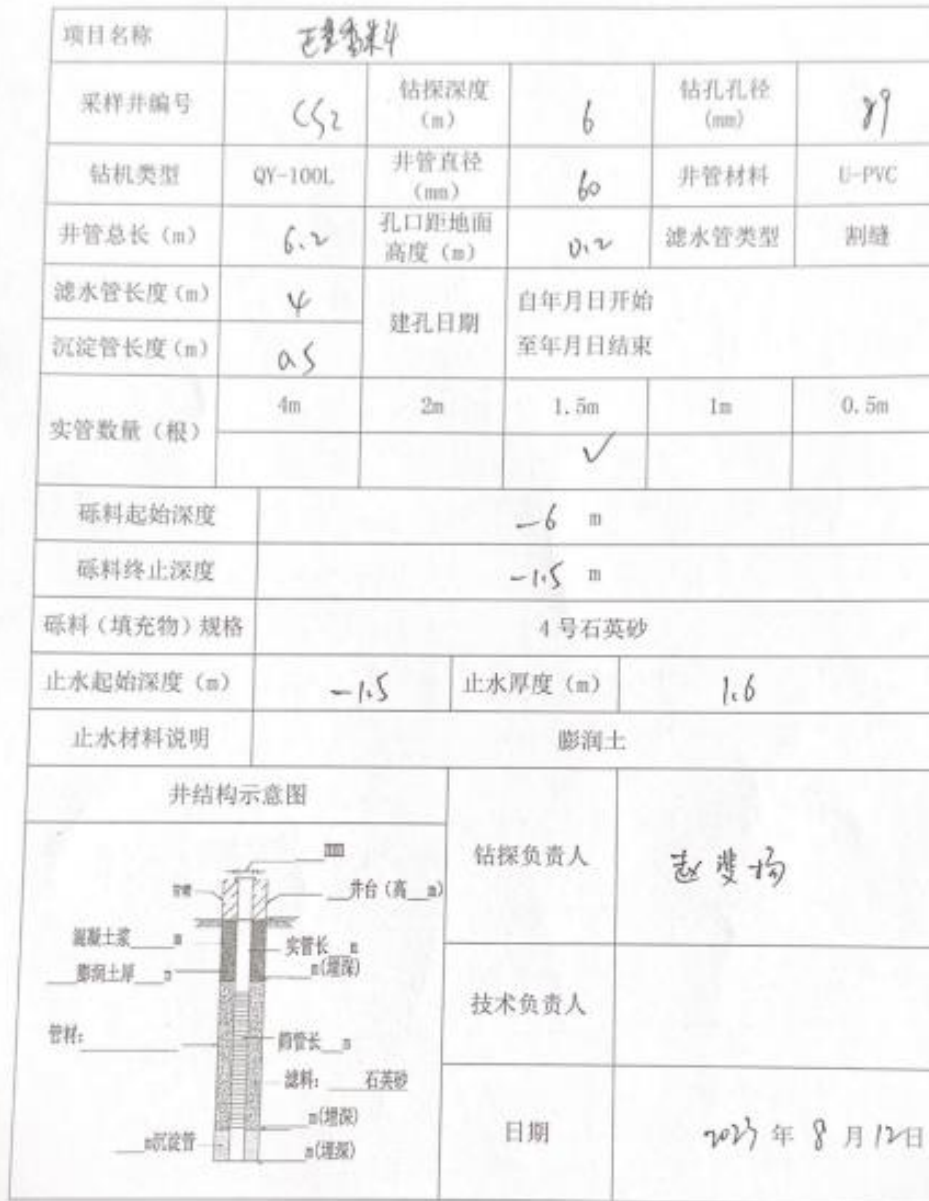 项目名称
采样井编号 CS2 钻探深度（m） 6 钻孔孔径（mm） 89
钻机类型 QY-100L 井管直径（mm） 60 井管材料 U-PVC
井管总长（m） 6.2 孔口距地面高度（m） 0.2 滤水管类型 割缝
滤水管长度（m） 4 建孔日期 自年月日开始
沉淀管长度（m） 0.5 至年月日结束
实管数量（根） 4m 2m 1.5m 1m 0.5m
✓
砾料起始深度 -6 m
砾料终止深度 -1.5 m
砾料（填充物）规格 4号石英砂
止水起始深度（m） -1.5 止水厚度（m） 1.6
止水材料说明 膨润土
井结构示意图
钻探负责人
井台（高__m）
混凝土浆___m
实管长__m
___m(埋深)
___膨润土厚__m
技术负责人
管材：________
筛管长__m
滤料：____石英砂
___m(埋深)
___m沉淀管
___m(埋深)
日期 2023年8月12日